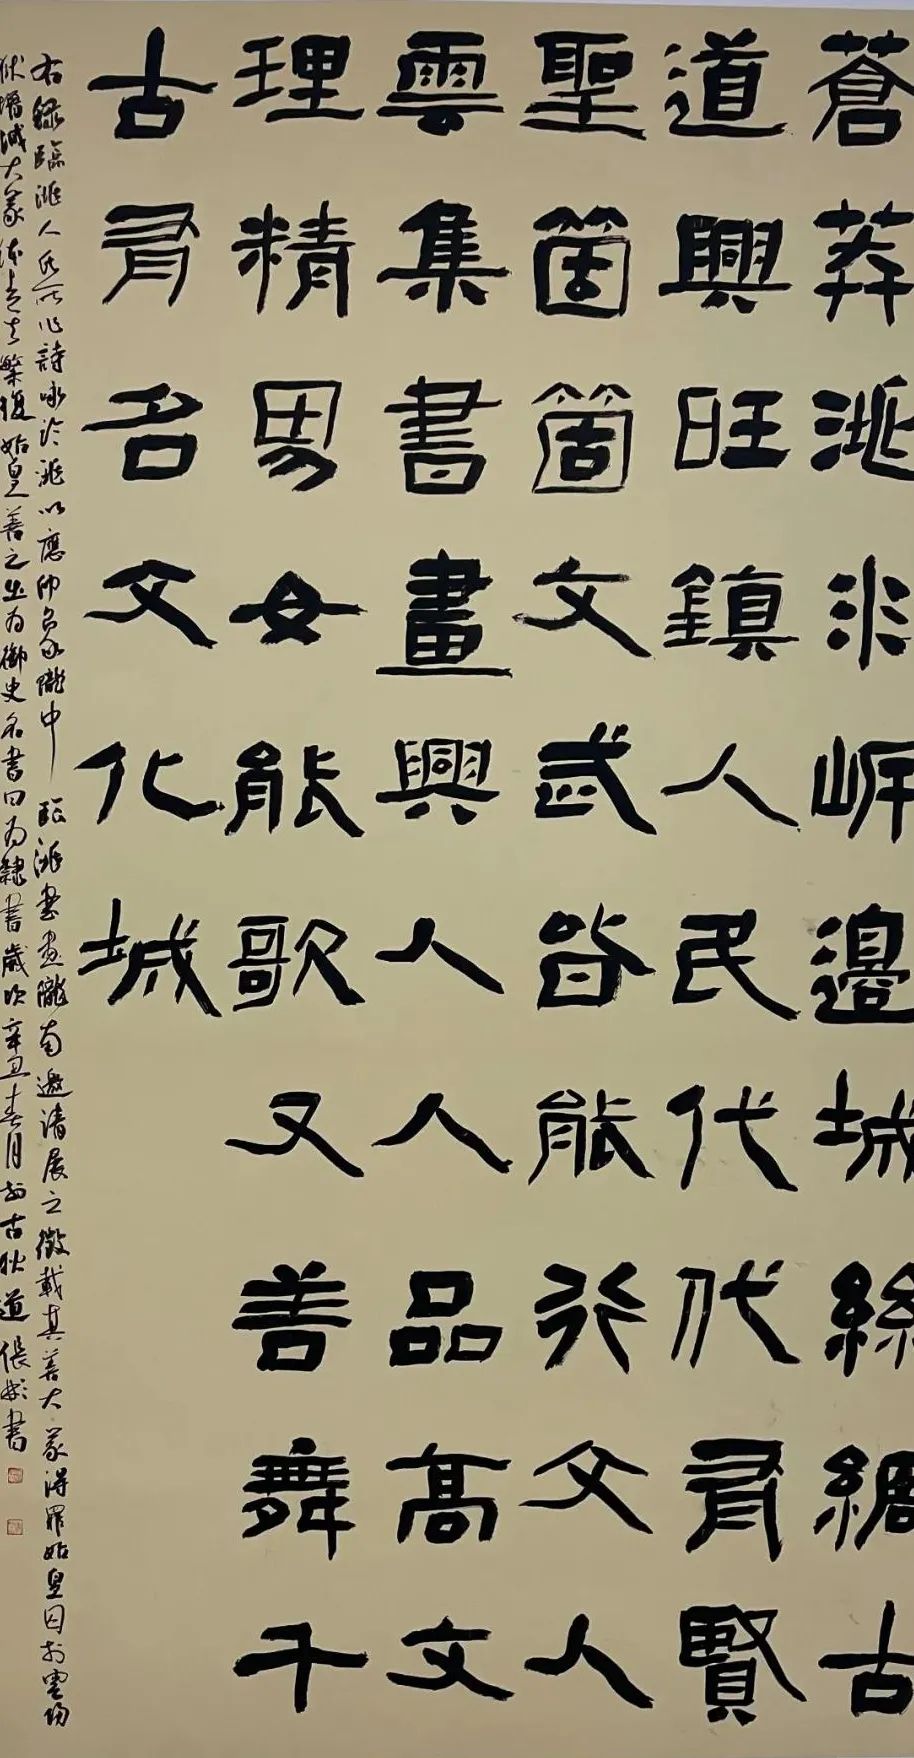 蒼莽洮水岸邊城絲綢古
道興旺鎮人民代代有賢
聖箇箇文武皆能行文人
雲集書畫興人人品高文
理精男女能歌又善舞千
古有名文化城
右錄臨洮人氏所作詩咏於洮以應隴中臨洮書畫隴南邀請展之徵載其善大篆得罪始皇囚於雲陽
獄增減大篆體去其繁複始皇善之出為御史名書曰為隸書歲次辛丑春月於古狄道張彬書